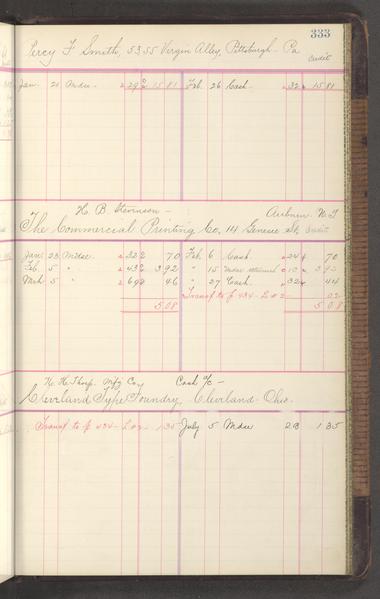 333
Percy F Smith, 53 55 Virgin Alley, Pittsburgh - Pa
Credit
Jan. 20 Mdse. 292 15 81 Feb. 26 Cash 32 15 81
H. B. Stevenson - Auburn N.Y
The Commercial Printing Co, 14 Genesee St. Credit
Jany 23 Mdse. 322 70 Feb 6 Cash 24 70
Feb. 5 " 432 3 92 " 15 Mdse returned 10 3 92
Mch 5 " 692 46 " 27 Cash 32 44
Transf to p 434 - L o 2 - 02
5.08 5 08
H. H. Thorp Mfg Co Cash a/c -
Cleveland Type Foundry, Cleveland - Ohio.
Transf to p 434 - L o 2 - 1 35 July 5 Mdse 23 1 35